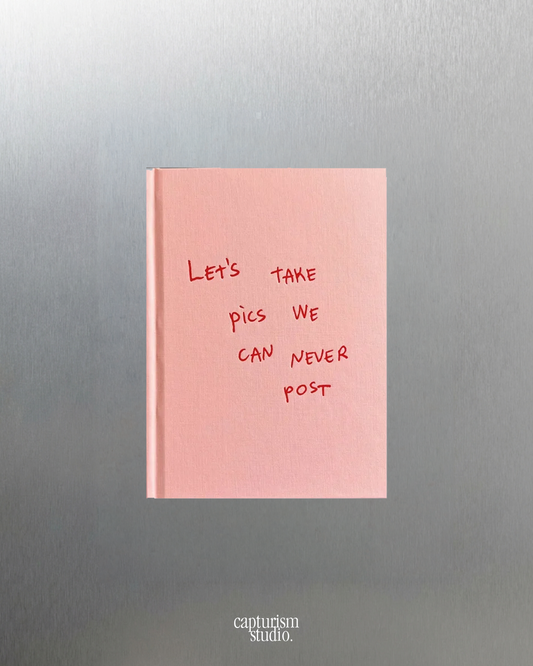 LET'S TAKE
pics WE
CAN NEVER
POST
capturism
studio.